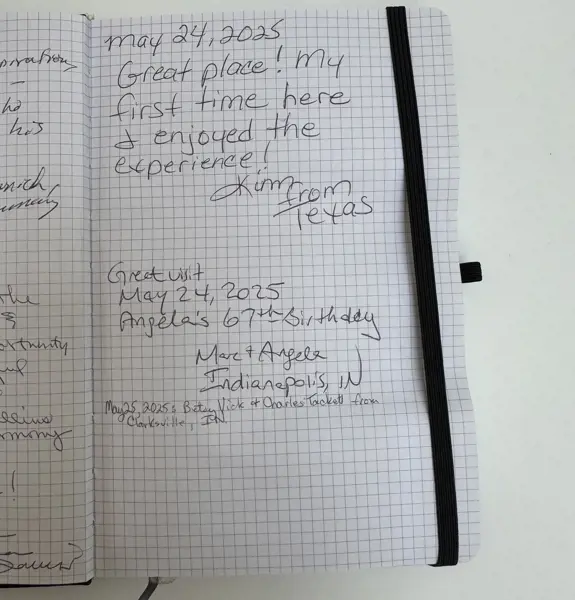 May 24, 2025
Great place! My
first time here
& enjoyed the
experience!
Kim
from
Texas
his
the
Great visit
May 24, 2025
Angela's 67th Birthday
Marc + Angela
Indianapolis, IN
May 25, 2025: Betsy Vick + Charles Tackett from
Clarksville, IN